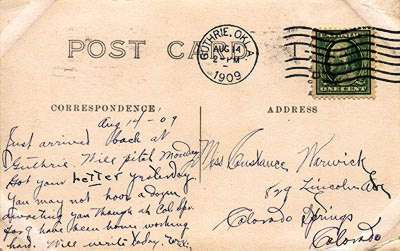 POST CARD
GUTHRIE, OKLA.
AUG 14
2-PM
1909
ONE CENT
CORRESPONDENCE
ADDRESS
Aug 14-09
Just arrived back at
Guthrie. Will pitch Monday
Got your letter yesterday
You may not
you though at Col Spr
for I have been working
hard. Will write today.
Miss Constance Warwick
829 Lincoln Av
Colorado Springs
Colorado